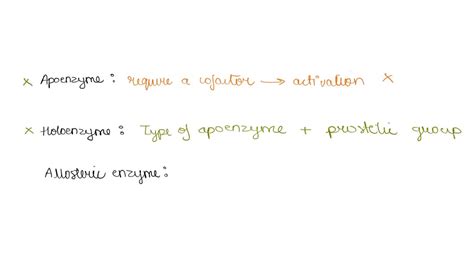 × Apoenzyme : require a cofactor → activation ×
× Holoenzyme : Type of apoenzyme + prosthetic group
Allosteric enzyme :